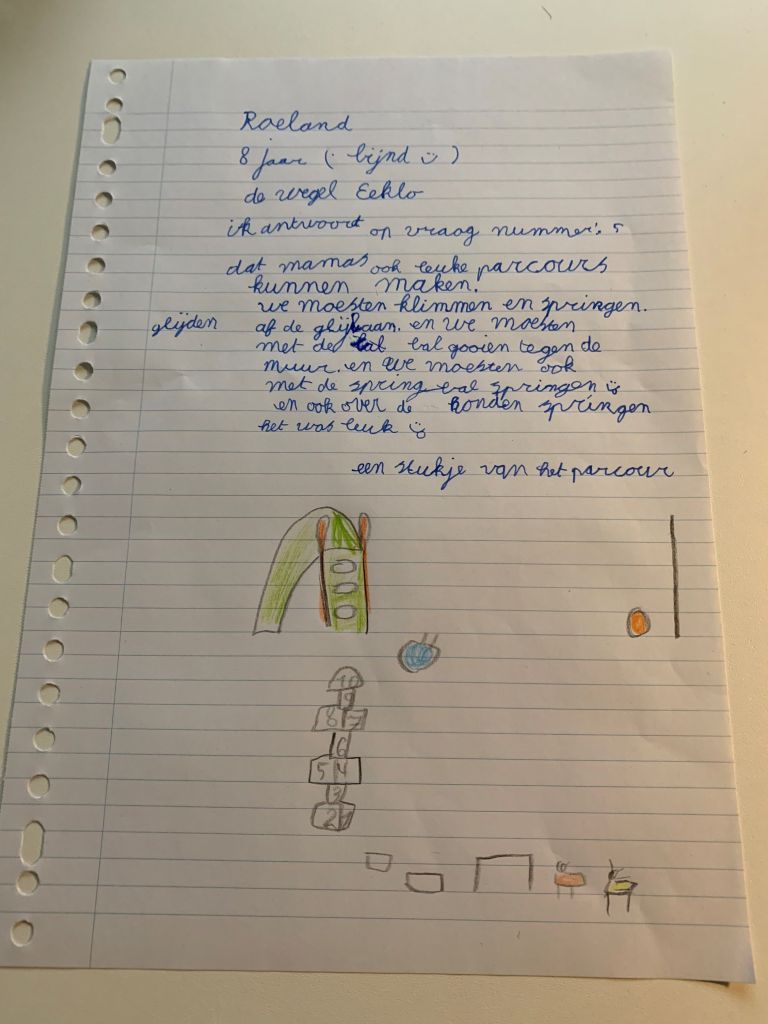 Roeland
8 jaar (: bijnd ☺ )
de wegel Eeklo
ik antwoort op vraag nummer: 5
dat mamas ook leuke parcours
kunnen maken.
we moesten klimmen en springen.
glijden af de glijbaan. en we moesten
met de bal gooien tegen de
muur. en we moesten ook
met de spring bal springen ☺
en ook over de honden springen
het was leuk ☺
een stukje van het parcour
10
9
8 7
6
5 4
3
2 1